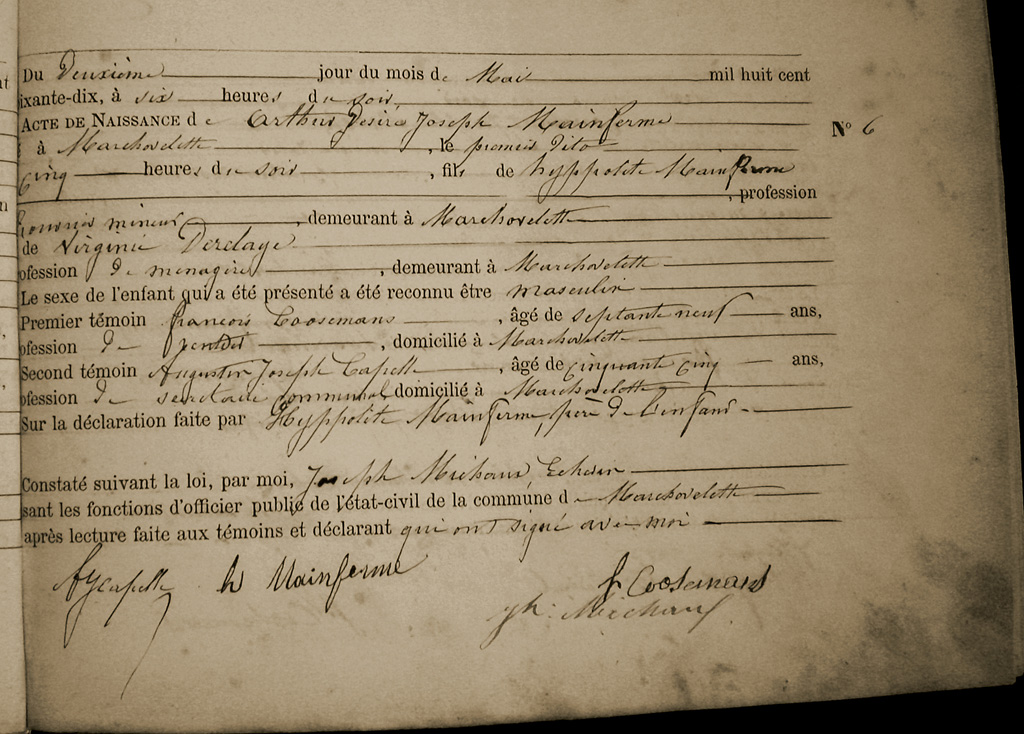 Du Deuxième jour du mois de Mai mil huit cent
ixante-dix, à six heures du soir,
ACTE DE NAISSANCE de Arthur Desiré Joseph Mainferme
N° 6
à Marchovelette, le premier dito
cinq heures du soir, fils de hyppolite Mainferme
, profession
ouvrier mineur, demeurant à Marchovelette
de Virginie Derelaye
ofession de menagère, demeurant à Marchovelette
Le sexe de l'enfant qui a été présenté a été reconnu être masculin
Premier témoin françois Coosemans, âgé de septante neuf ans,
ofession de, domicilié à Marchovelette
Second témoin Augustin Joseph Capelle, âgé de cinquante cinq ans,
ofession de secrétaire communal domicilié à Marchovelette
Sur la déclaration faite par Hyppolite Mainferme, père de l'enfant
Constaté suivant la loi, par moi, Joseph Michaux, Echevin
sant les fonctions d'officier public de l'état-civil de la commune de Marchovelette
après lecture faite aux témoins et déclarant qui ont signé avec moi
AJCapelle h Mainferme f Coosemans
jh: Michaux